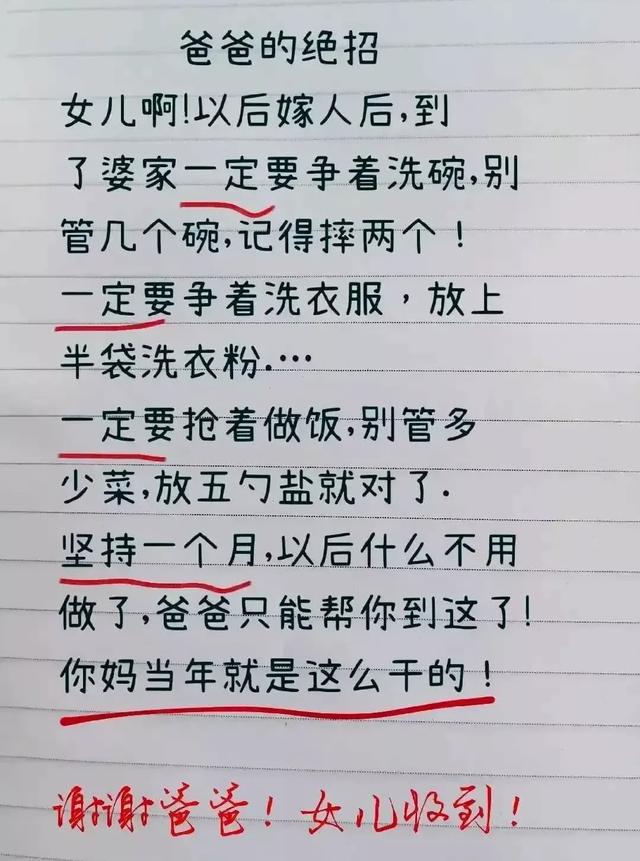 爸爸的绝招
女儿啊!以后嫁人后,到
了婆家一定要争着洗碗,别
管几个碗,记得摔两个!
一定要争着洗衣服，放上
半袋洗衣粉.…
一定要抢着做饭,别管多
少菜,放五勺盐就对了.
坚持一个月,以后什么不用
做了,爸爸只能帮你到这了!
你妈当年就是这么干的!
谢谢爸爸!女儿收到!